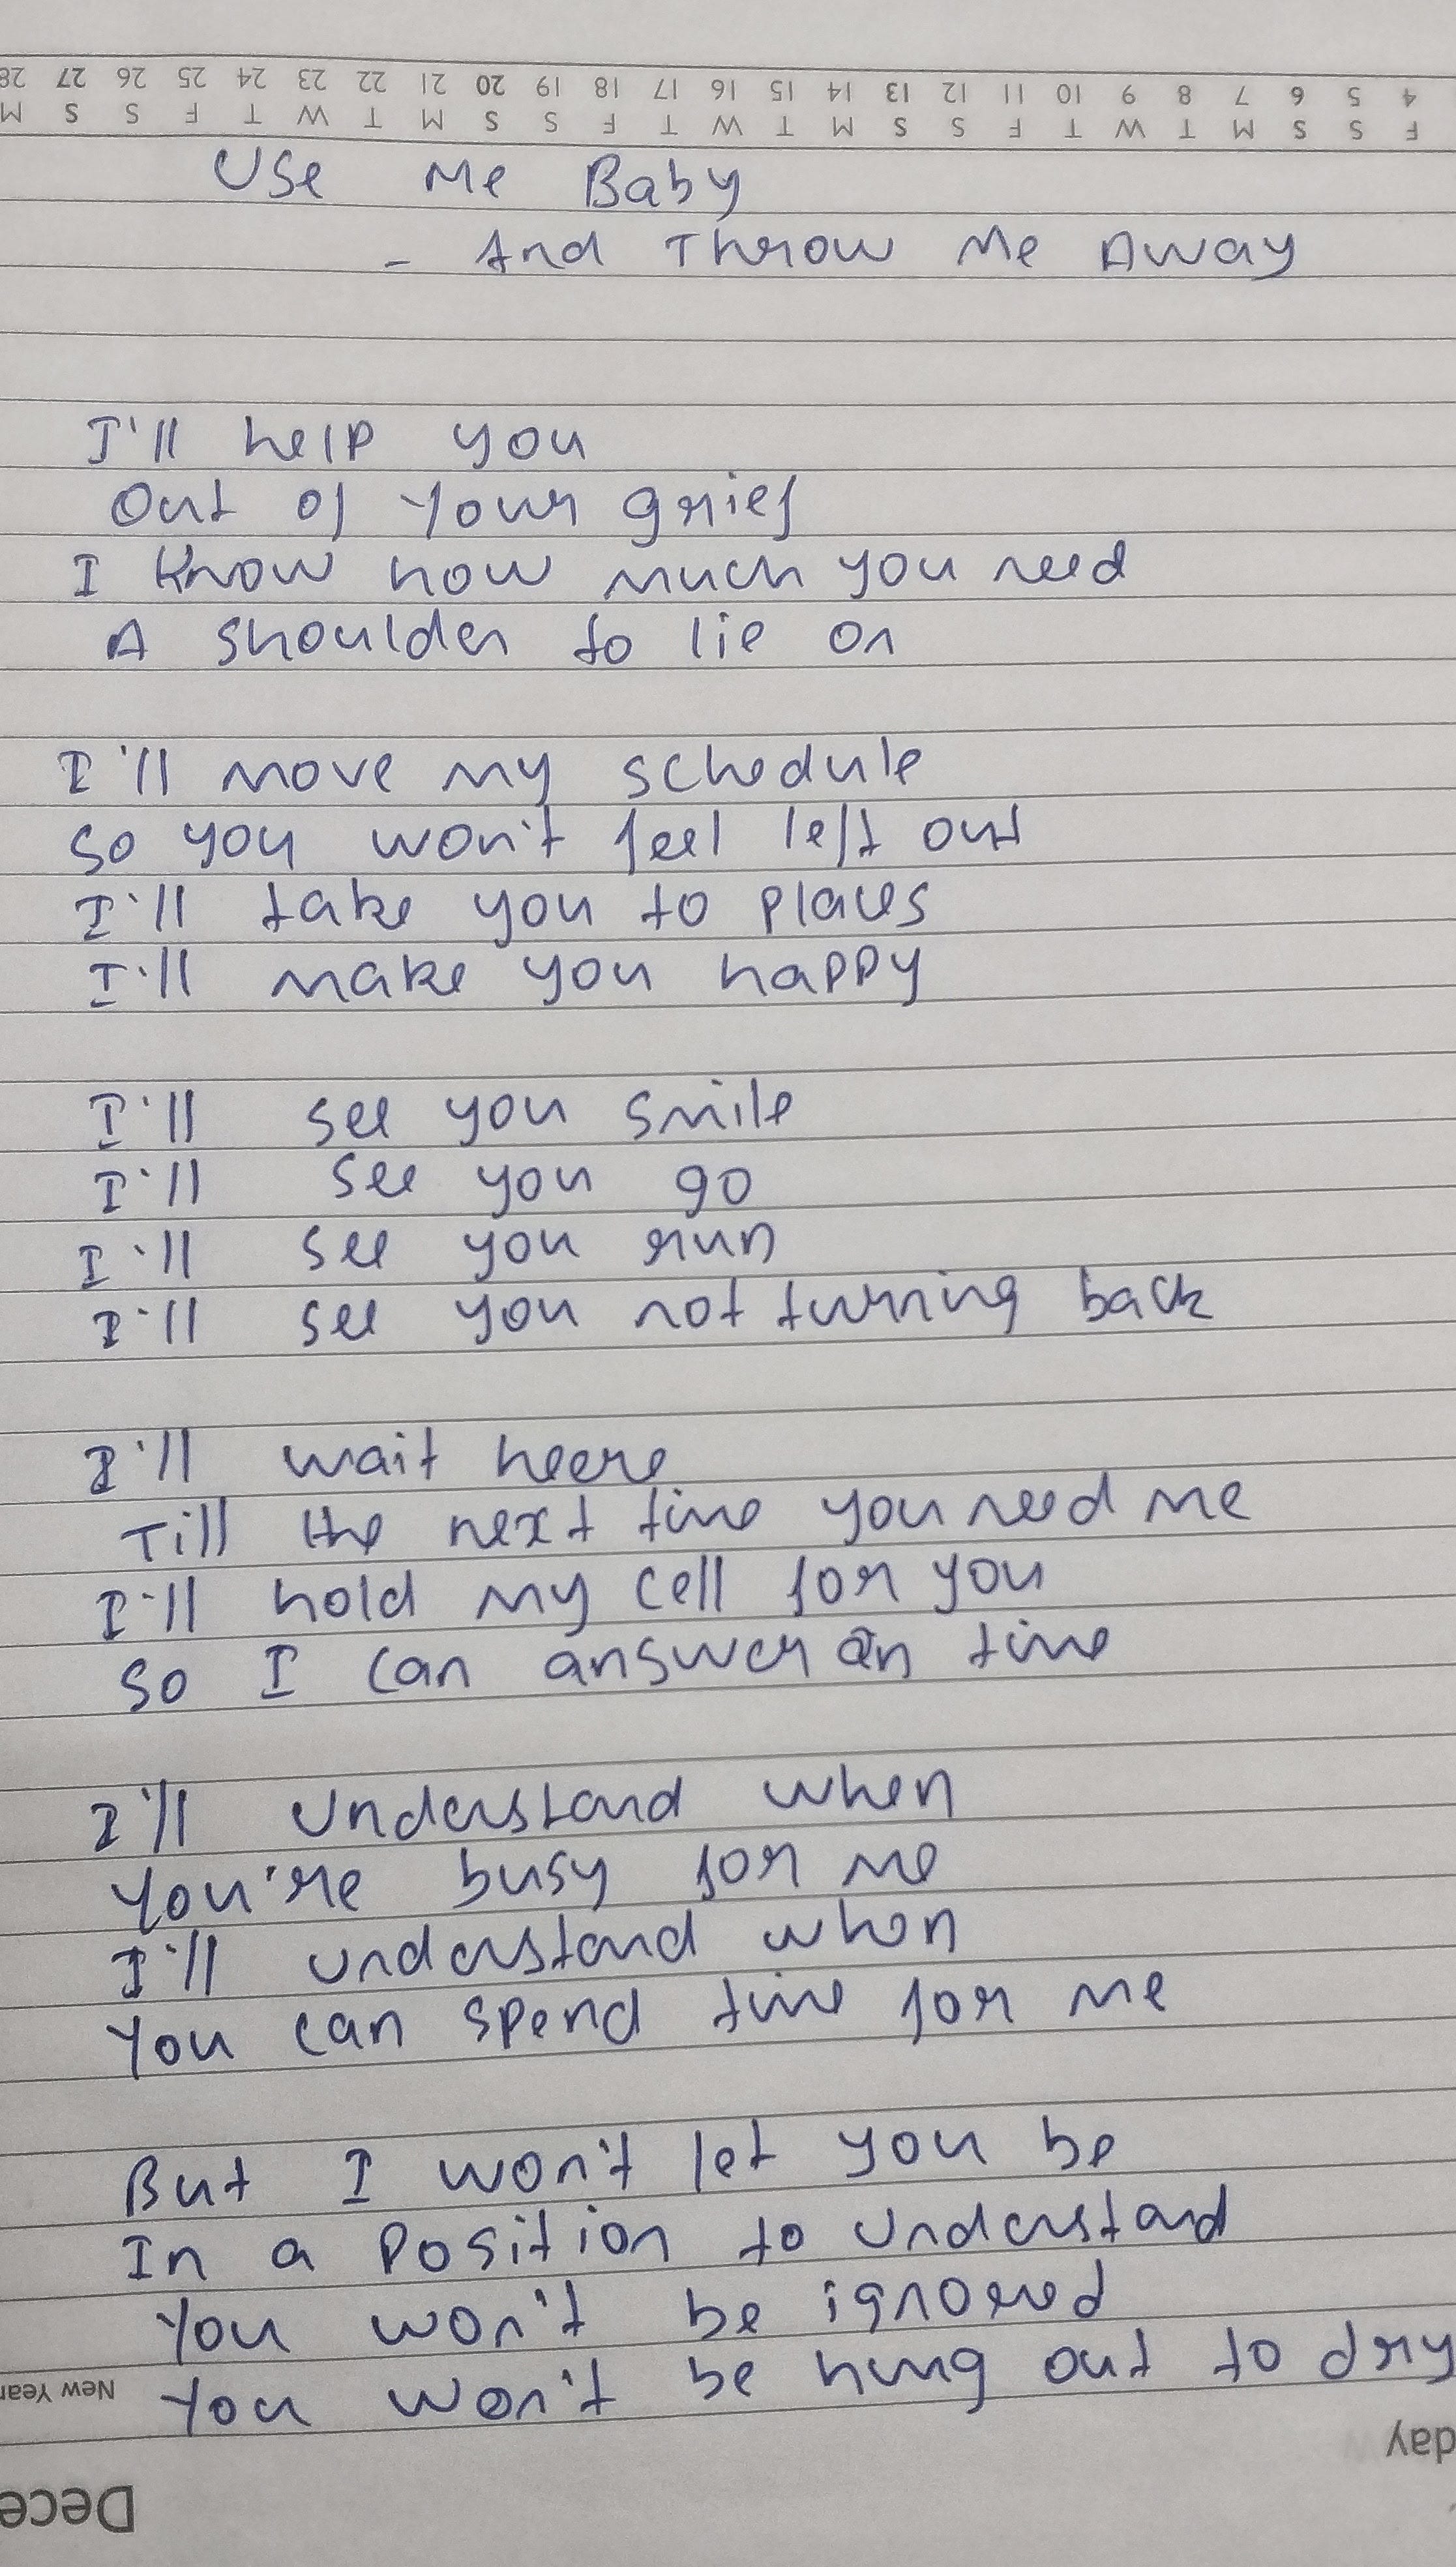 28 27 26 25 24 23 22 21 20 19 18 17 16 15 14 13 12 11 10 9 8 7 6 5 4
M S S F T W T M S S F T W T M S S F T W T M S S F
Use Me Baby
- And Throw Me Away
I'll help you
Out of your grief
I know how much you need
A shoulder to lie on
I'll move my schedule
So you won't feel left out
I'll take you to places
I'll make you happy
I'll see you smile
I'll see you go
I'll see you run
I'll see you not turning back
I'll wait heere
Till the next time you need me
I'll hold my cell for you
So I can answer in time
I'll understand when
You're busy for me
I'll understand when
You can spend time for me
But I won't let you be
In a position to understand
You won't be ignored
You won't be hung out to dry
New Year
day
Dece